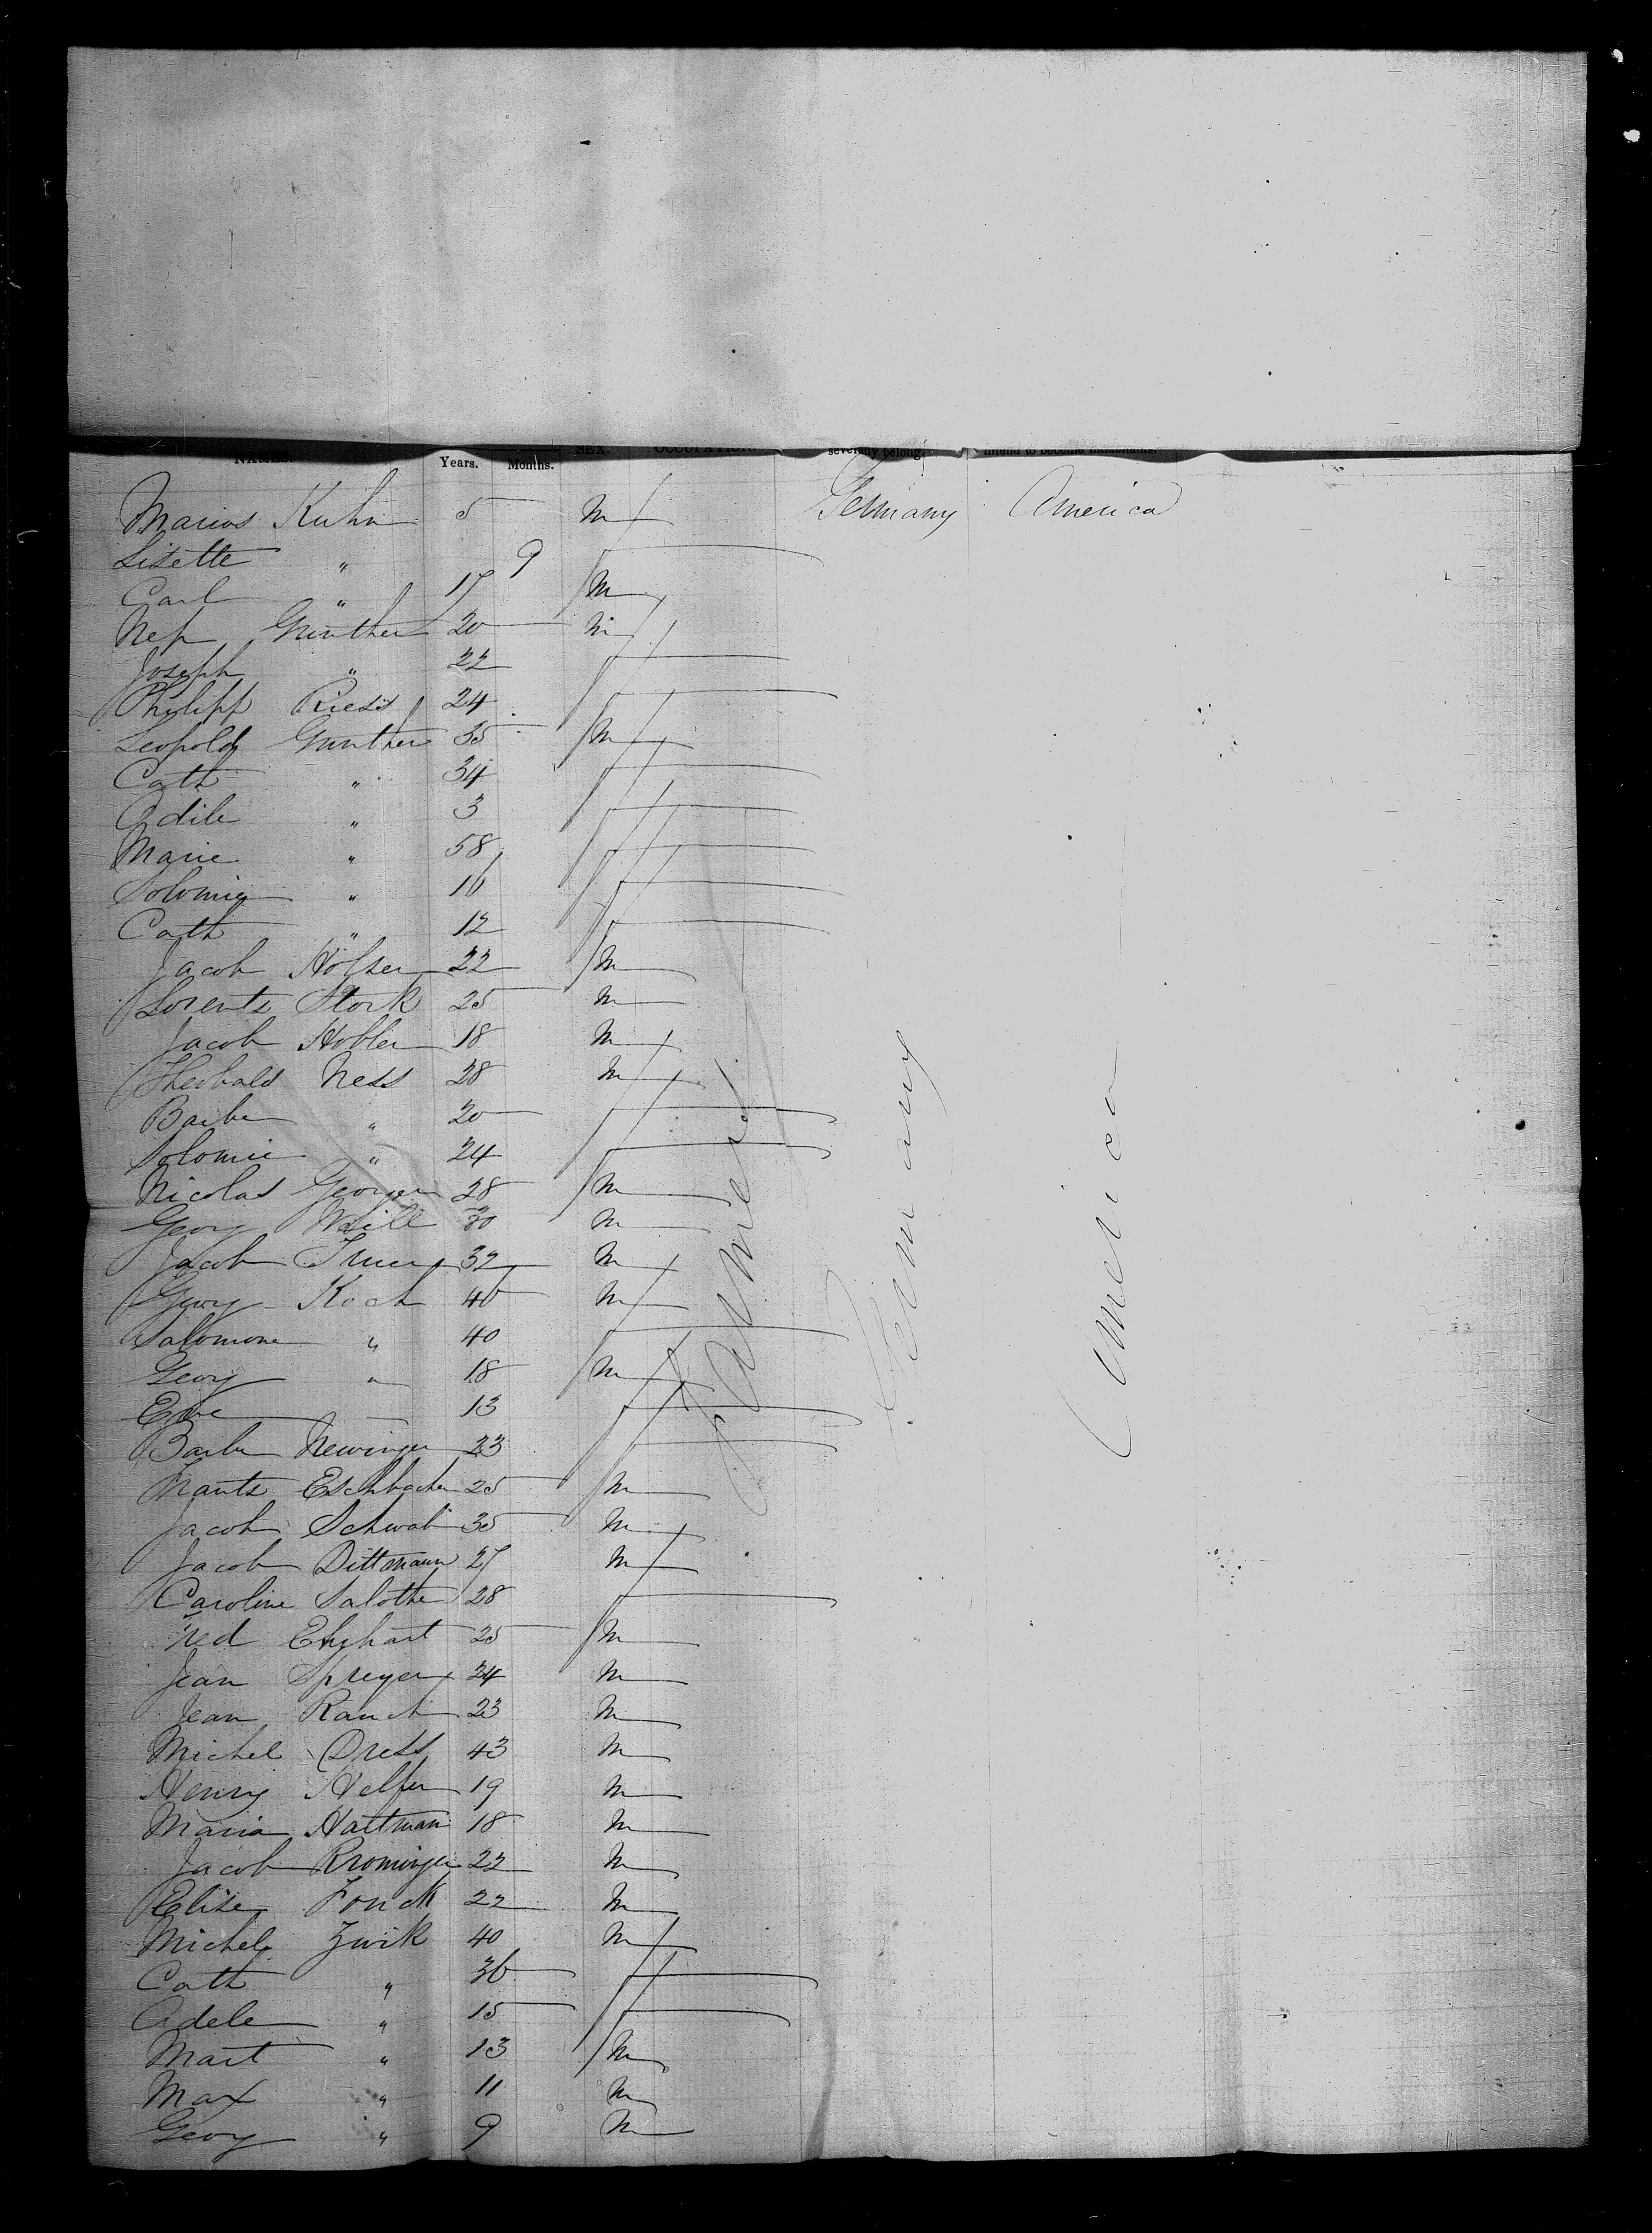 NAMES. Years. Months. SEX. OCCUPATION. severally belong. intend to become inhabitants.
Marius Kuhn 5 m Germany America
Lisette " 9 f
Carl " 17 m
Nep Gunther 20 m
Joseph " 22 f
Philipp Riess 24 f
Leopold Gunther 35 m
Cath " 34 f
Odile " 3 f
Marie " 58 f
Solomie " 16 f
Cath " 12 f
Jacob Holser 22 m
Lorents Stork 25 m
Jacob Hobler 18 m
Theobald Ness 28 m
Barbe " 20 f
Solomie " 24 f
Nicolas Georger 28 m
Georg Weill 30 m
Jacob 32 m
Georg Koch 46 m
Salomone " 40 f
Georg " 18 m
Eve 13 f
Barbe Newinger 23 f
Frants Eschbacher 25 m
Jacob Schwab 35 m
Jacob Dittmann 27 m
Caroline Salothe 28 f
Fred Ehrhart 25 m
Jean Spreyer 24 m
Jean Rauch 23 m
Michel Dress 43 m
Henry Helfer 19 m
Maria Hattman 18 m
Jacob Krominger 22 m
Elise Fonck 22 m
Michel Zwik 40 m
Cath " 36 f
Adele " 15 f
Mart " 13 m
Max " 11 m
Georg " 9 m
Farmers
Germany
America